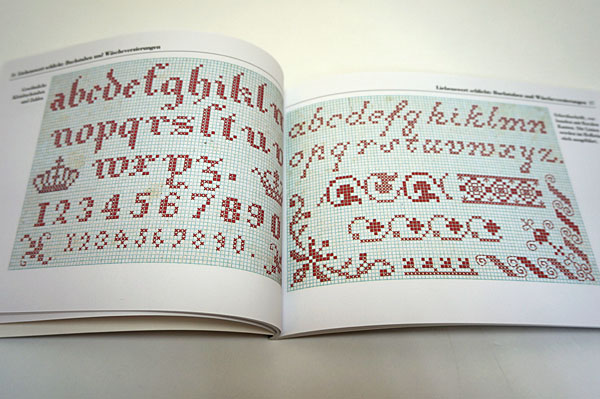 Liebenswert-schlicht: Buchstaben und Wäscheverzierungen
und Zahlen.
abcdefghikl
nopqrsſtuv
wxyz.
1234567890
1234567890.
Liebenswert-schlicht: Buchstaben und Wäscheverzierungen
abcdefghiklmn
opqrstuvwxyz.